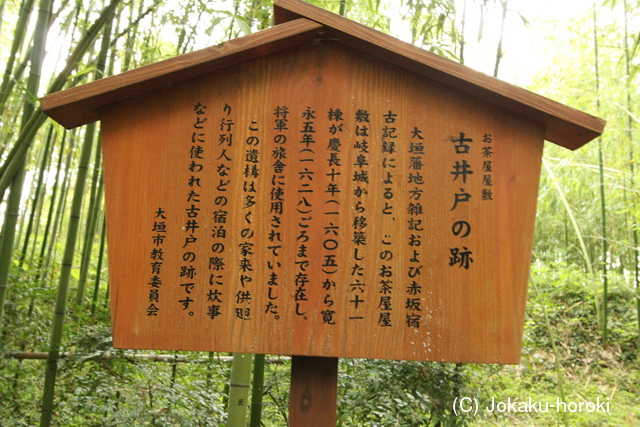 お茶屋屋敷
古井戸の跡
大垣藩地方雑記および赤坂宿
古記録によると、このお茶屋屋
敷は岐阜城から移築した六十一
棟が慶長十年(一六〇五)から寛
永五年(一六二八)ごろまで存在し、
将軍の旅舎に使用されていました。
この遺構は多くの家来や供廻
り行列人などの宿泊の際に炊事
などに使われた古井戸の跡です。
大垣市教育委員会
(C) Jokaku-horoki